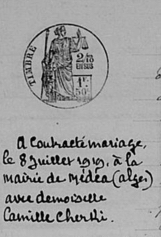 TIMBRÉ
A Contracté mariage,
le 8 Juillet 1919, à la
mairie de Médéa (alger)
avec demoiselle
Camille Cherki.